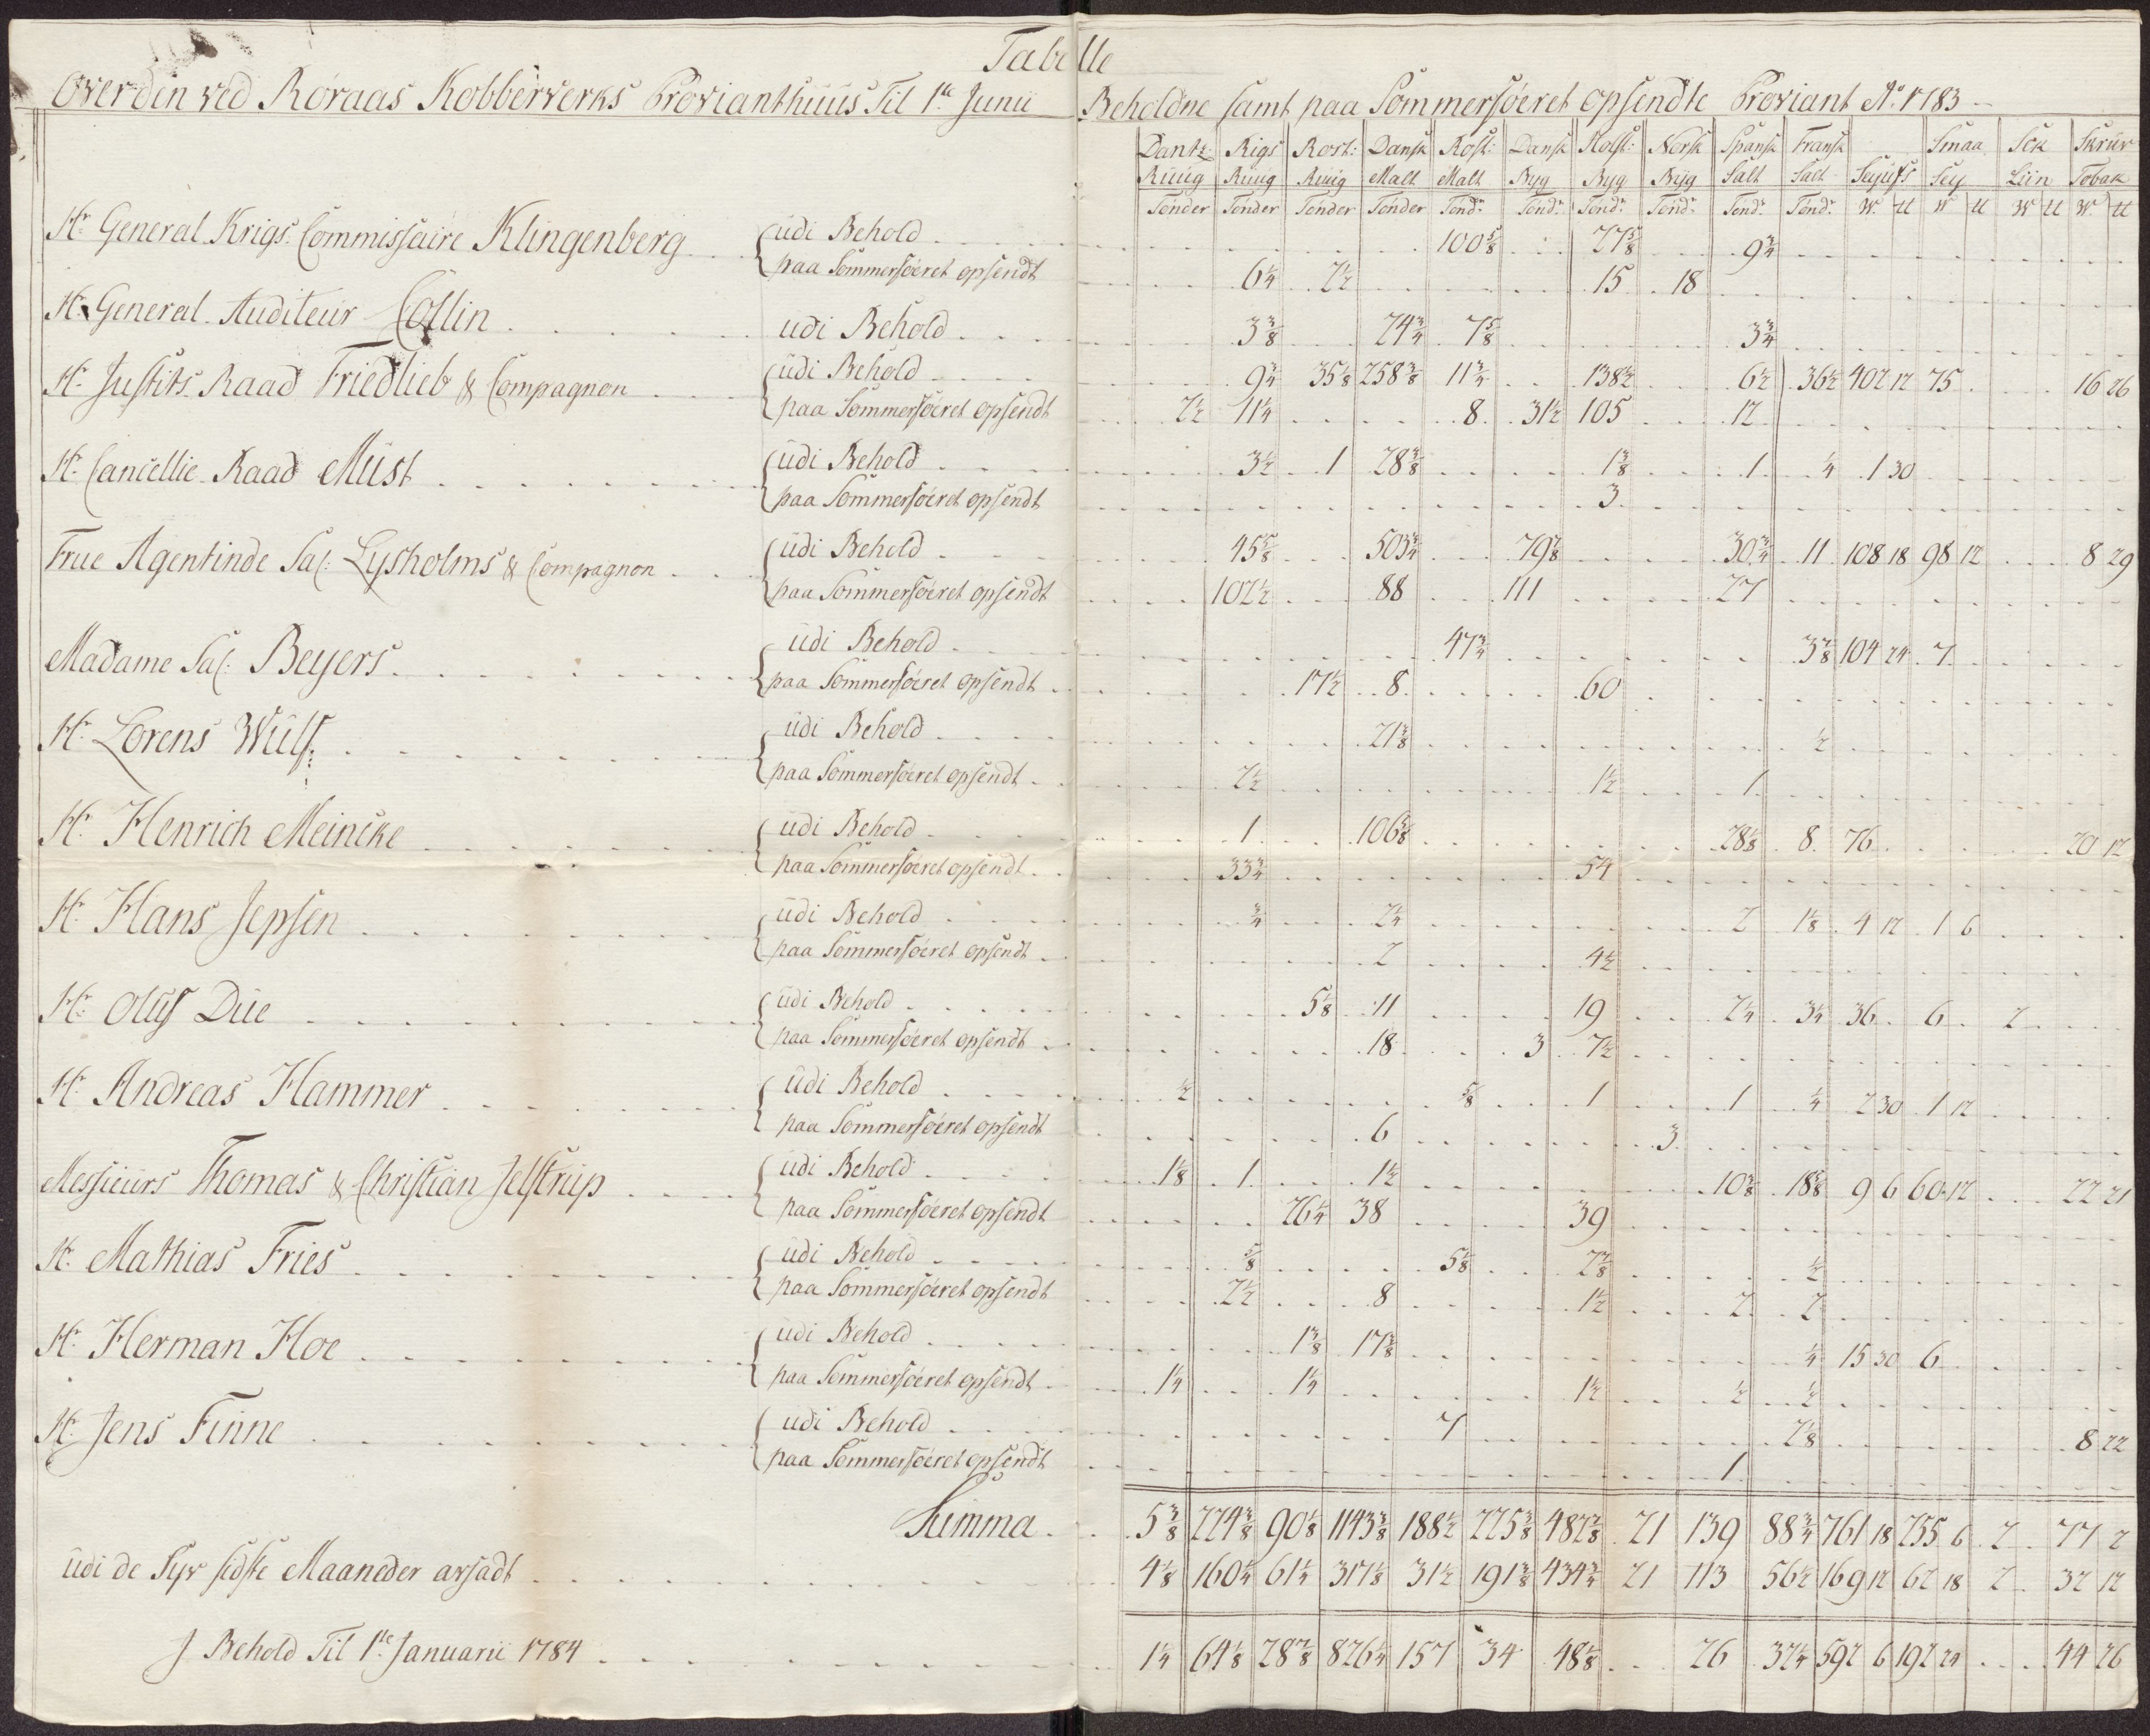 Tabelle
Over den ved Røraas Kobberverks Provianthuus Til 1ste Junii Beholdne samt paa Sommerføeret opsendte Proviant Ao 1783
Dantz: Rigs Rost: Dansk Rost: Dansk Holst: Norsk Spansk Fransk Smaa Sck Skruv
Ruug Ruug Ruug Malt Malt Byg Byg Byg Salt Salt Sejufs Sey Liin Tobak
Tønder Tønder Tønder Tønder Tønd: Tønd: Tønd: Tønd: Tønd: Tønd: W. ℔ W ℔ W ℔ W. ℔
Hr General Krigs: Commissaire Klingenberg
udi Behold 100 5/8 27 5/8 9 3/4
paa Sommerføeret opsendt 6 1/4 2 1/2 15 18
Hr General Auditeur Collin udi Behold 3 3/8 24 3/4 7 5/8 3 3/4
Hr Justits Raad Friedlieb & Compagnon
udi Behold 9 3/4 35 1/8 258 3/8 11 3/4 138 1/2 6 1/2 36 1/2 402 12 75 16 26
paa Sommerføeret opsendt 2 1/2 11 1/4 8 31 1/2 105 12
Hr Cancellie Raad Must
udi Behold 3 1/2 1 28 3/8 1 3/8 1 1/4 1 30
paa Sommerføeret opsendt 3
Frue Agentinde Sal: Lysholms & Compagnon
udi Behold 45 5/8 503 3/4 79 7/8 30 3/4 11 108 18 98 12 8 29
paa Sommerføeret opsendt 102 1/2 88 111 27
Madame Sal: Beyers
udi Behold 47 3/4 3 7/8 104 24 7
paa Sommerføeret opsendt 17 1/2 8 60
Hr Lorens Wulf
udi Behold 21 3/8 1/2
paa Sommerføeret opsendt 2 1/2 1 1/2 1
Hr Henrich Meincke
udi Behold 1 106 5/8 28 1/8 8 76 20 12
paa Sommerføeret opsendt 33 3/4 54
Hr Hans Jepsen
udi Behold 3/4 2 1/4 2 1 1/8 4 12 1 6
paa Sommerføeret opsendt 2 4 1/2
Hr Oluf Due
udi Behold 5 1/8 11 19 2 1/4 3 1/4 36 6 2
paa Sommerføeret opsendt 18 3 7 1/2
Hr Andreas Hammer
udi Behold 1/2 5/8 1 1 1/4 2 30 1 12
paa Sommerføeret opsendt 6 3
Messieurs Thomas & Christian Jelstrup
udi Behold 1 1/8 1 1 1/2 10 3/8 18 5/8 9 6 60 12 22 21
paa Sommerføeret opsendt 26 1/4 38 39
Hr Mathias Fries
udi Behold 5/8 5 1/8 2 7/8 1/2
paa Sommerføeret opsendt 2 1/2 8 1 1/2 2 2
Hr Herman Hoe
udi Behold 1 3/8 17 3/8 1/4 15 30 6
paa Sommerføeret opsendt 1 1/4 1 1/4 1 1/2 1/2 1/2
Hr Jens Finne
udi Behold 7 2 1/8 8 22
paa Sommerføeret opsendt 1
Summa 5 3/8 224 3/8 90 1/8 1143 3/8 188 1/2 225 3/8 482 7/8 21 139 88 3/4 761 18 255 6 2 77 2
udi de Syv sidste Maaneder afsadt 4 1/8 160 1/4 61 1/4 317 1/8 31 1/2 191 3/8 434 3/4 21 113 56 1/2 169 12 62 18 2 32 12
J Behold Til 1ste Januarii 1784 1 1/4 64 1/8 28 7/8 826 1/4 157 34 48 1/8 26 32 1/4 592 6 192 24 44 26